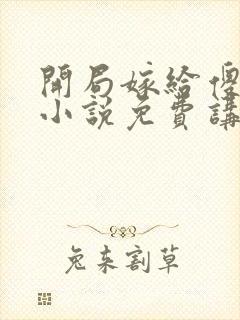 開局嫁給傻
小說免費講
兔來割草